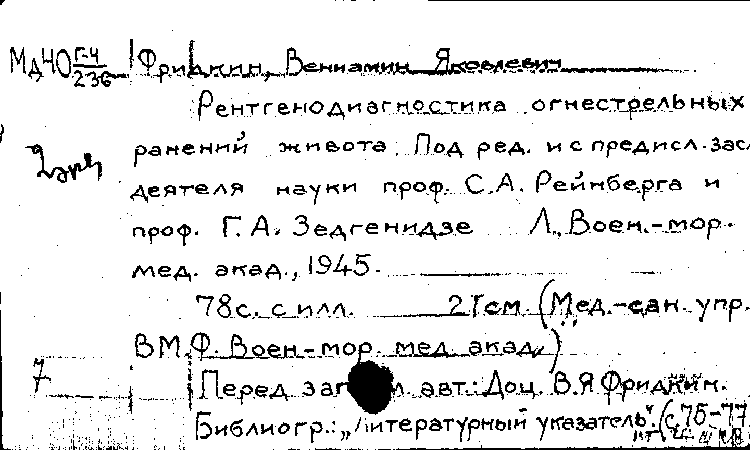 МдЧО Г-4/236 Фридкин, Вениамин Яковлевич
Рентгенодиагностика огнестрельных
ранений живота. Под ред. и с предисл. засл.
деятеля науки проф. С.А. Рейнберга и
проф. Г.А. Зедгенидзе Л., Воен.-мор.
мед. акад., 1945.
78с. с илл. 21см. (Мед.-сан. упр.
ВМФ. Воен-мор. мед. акад.)
7 Перед авт.: Доц. В.Я Фридкин.
Библиогр.: „Литературный указатель". (с. 75-77